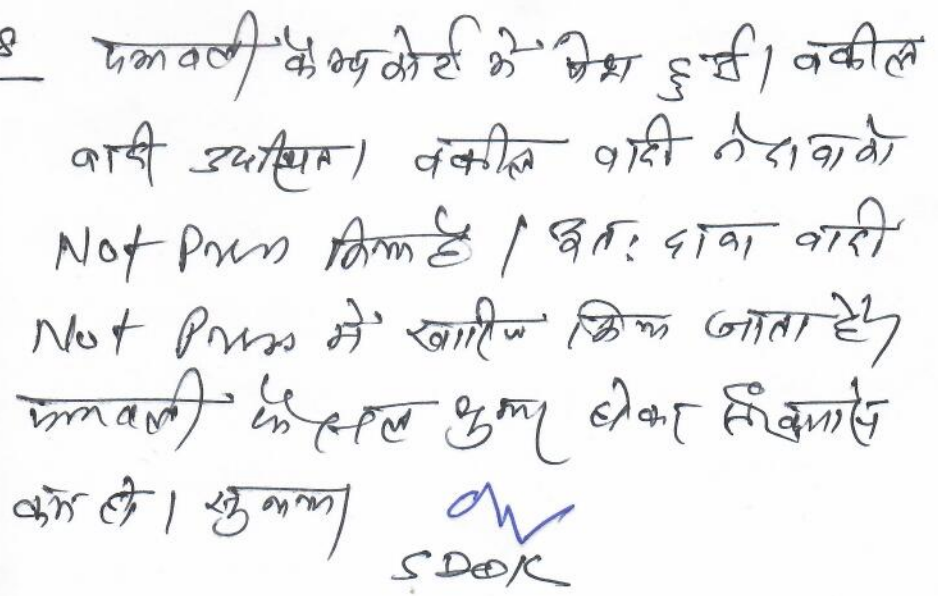 8 पत्रावली कैम्प कोर्ट में पेश हुई। वकील
वादी उपस्थित। वकील वादी ने दावा को
Not Press किया है। अतः दावा वादी
Not Press में खारीज किया जाता है।
पत्रावली फैसल शुमार होकर
हो। सुनाया।
SDOK